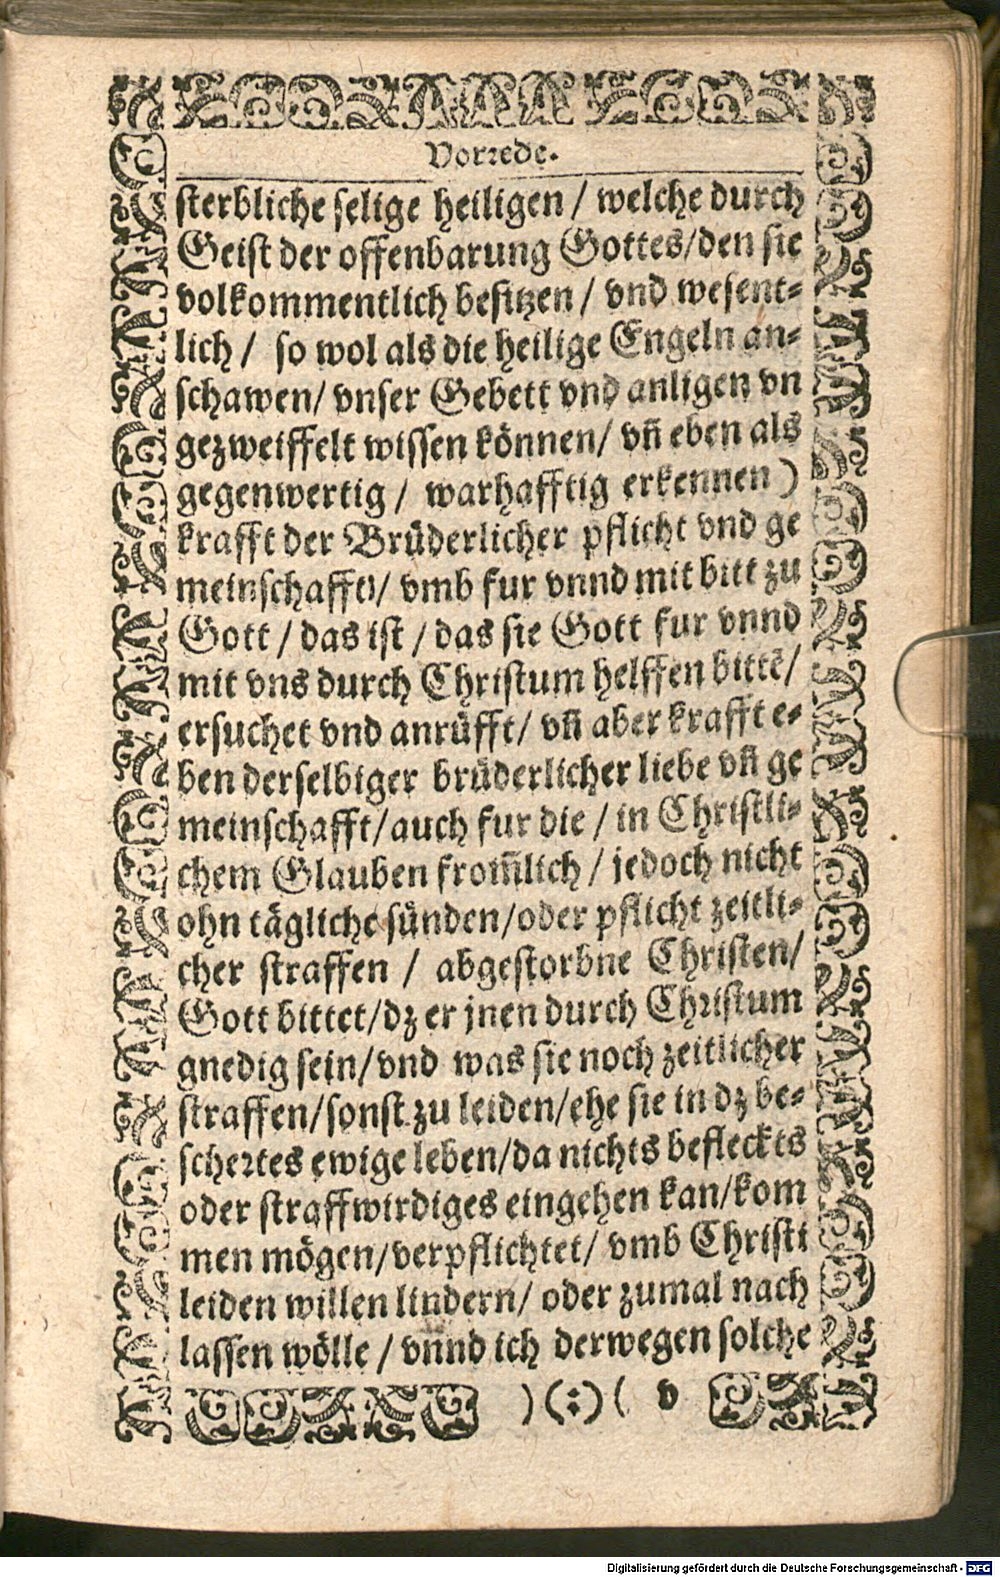 Vorrede.
sterbliche selige heiligen / welche durch
Geist der offenbarung Gottes/den sie
volkommentlich besitzen / vnd wesent-
lich / so wol als die heilige Engeln an-
schawen/ vnser Gebett vnd anligen vn
gezweiffelt wissen können/ vñ eben als
gegenwertig / warhafftig erkennen )
krafft der Brüderlicher pflicht vnd ge
meinschafft)/ vmb fur vnnd mit bitt zu
Gott / das ist / das sie Gott fur vnnd
mit vns durch Christum helffen bittẽ/
ersuchet vnd anrüfft/ vñ aber krafft e-
ben derselbiger brüderlicher liebe vñ ge
meinschafft/auch fur die / in Christli-
chem Glauben from̃lich / jedoch nicht
ohn tägliche sünden/oder pflicht zeitli-
cher straffen / abgestorbne Christen/
Gott bittet/dz er jnen durch Christum
gnedig sein/vnd was sie noch zeitlicher
straffen/sonst zu leiden/ehe sie in dz be-
schertes ewige leben/da nichts befleckts
oder straffwirdiges eingehen kan/kom
men mögen/verpflichtet/ vmb Christi
leiden willen lindern/ oder zumal nach
lassen wölle / vnnd ich derwegen solche
)(:)( v
Digitalisierung gefördert durch die Deutsche Forschungsgemeinschaft - DFG